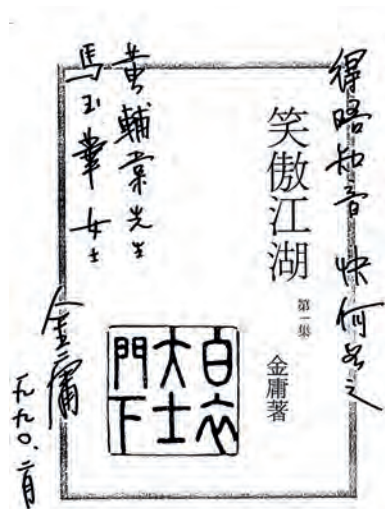 得晤知音 快何如之
笑傲江湖
第一集
金庸著
白衣
大士
門下
黃輔棠先生
馬玉華女士
金庸
一九九〇.二月